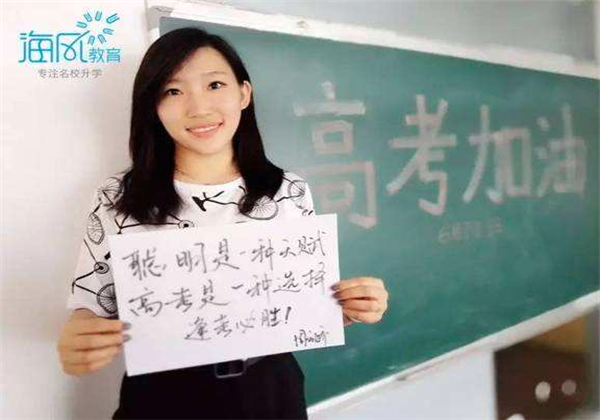 海风教育
专注名校升学
高考加油
聪明是一种天赋
高考是一种选择
逢考必胜!